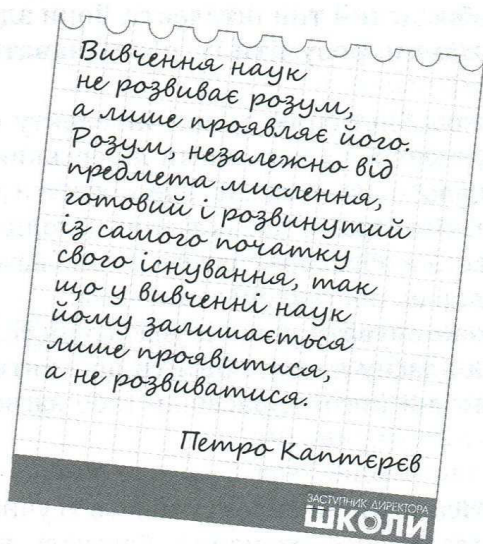 Вивчення наук
не розвиває розум,
а лише проявляє його.
Розум, незалежно від
предмета мислення,
готовий і розвинутий
із самого початку
свого існування, так
що у вивченні наук
йому залишається
лише проявитися,
а не розвиватися.
Петро Каптєрєв
ЗАСТУПНИК ДИРЕКТОРА
ШКОЛИ